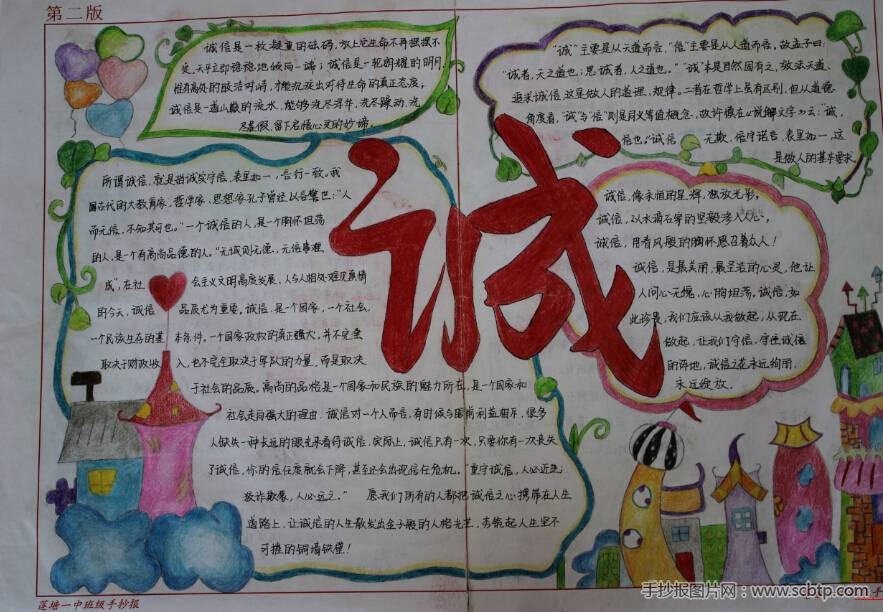 第二版
诚信是一枚凝重的砝码,放上它生命不再摇摆不
定,天平立即稳稳地倾向一端;诚信是一轮朗耀的明月
唯有高处的皎洁对峙,才能沉淀出对待生命的真正态度;
诚信是一道山巅的流水,能够洗尽浮华,洗尽躁动,洗
尽虚假,留下启悟心灵的妙谛
“诚”主要是从天道而言,“信”主要是从人道而言,故孟子曰:
“诚者,天之道也;思诚者,人之道也。”“诚”本是自然固有之,效法天道、
追求诚信,这是做人的道理、规律。二者在哲学上虽有区别,但从道德
角度看,“诚”与“信”则是同义等值概念,故许慎在《说解文字》云:“诚,
信也。”诚信 无欺,信守诺言,表里如一,这
是做人的基本要求
诚
所谓诚信,就是指诚实守信,表里如一,言行一致。我
国古代的大教育家、哲学家、思想家孔子曾经以告誓也:“人
而无信,不知其可也。”一个诚信的人,是一个胸怀坦荡
的人,是一个有高尚品德的人。“无诚则无德,无信事难
成”,在社 会主义文明高度发展,人与人相处难见真情
的今天,诚信 品质尤为重要。诚信,是一个国家,一个社会,
一个民族生存的基 本条件。一个国家政权的真正强大,并不完全
取决于财政收 入,也不完全取决于军队的力量,而是取决
于社会的品质。高尚的品格是一个国家和民族的魅力所在,是一个国家和
社会走向强大的理由。诚信对一个人而言,有时候与国商利益相斥,很多
人缺失一种长远的眼光来看待诚信,实际上,诚信只有一次,只要你有一次丧失
了诚信,你的信任度就会下降,甚至还会出现信任危机。“重守诚信,人必近之;
狡诈欺暴,人必远之。” 愿我们所有的人都把诚信之心携带在人生
道路上,让诚信的人生散发出金子般的人格光芒,去筑起人生坚不
可摧的铜墙铁壁!
诚信,像永恒的星辉,悬放光彩,
诚信,以水滴石穿的坚毅渗入人心,
诚信,用春风般的胸怀感召着众人!
诚信,是最美丽、最圣洁的心灵,他让
人问心无愧,心胸坦荡。诚信,如
此珍贵,我们应该从我做起,从现在
做起,让我们守信,守住诚信
的阵地,诚信之花永远绚丽,
永远绽放。
莲塘一中班级手抄报
手抄报图片网:www.scbtp.com